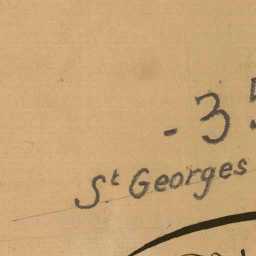 - 35
St Georges